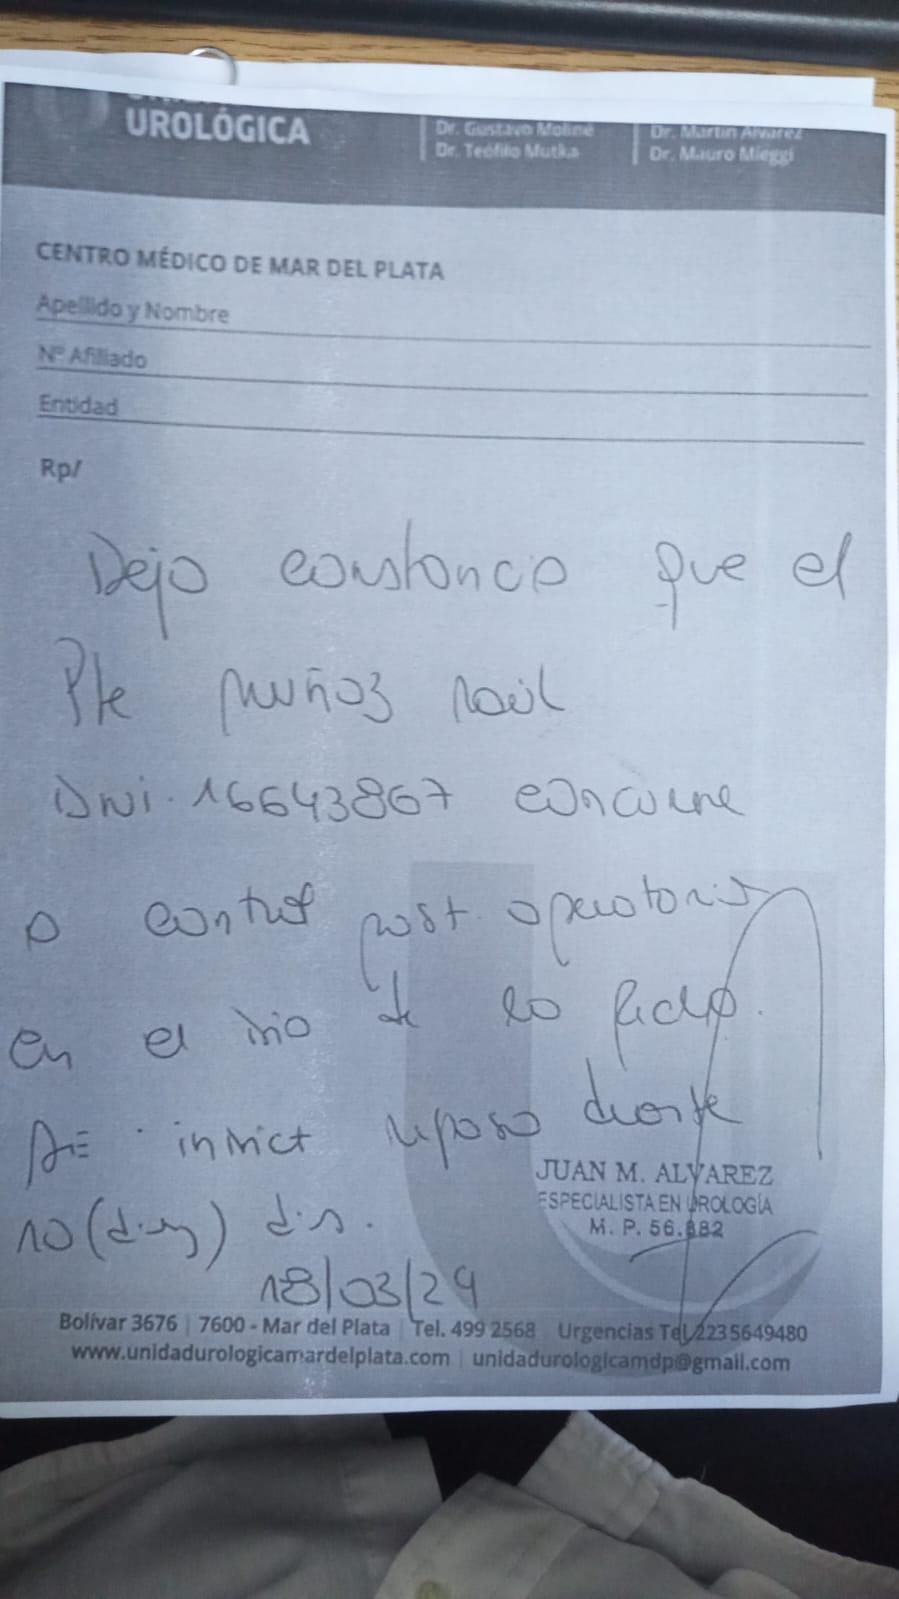 UROLÓGICA
Dr. Gustavo Moliné
Dr. Teófilo Mutka
Dr. Martín Alvarez
Dr. Mauro Mieggi
CENTRO MÉDICO DE MAR DEL PLATA
Apellido y Nombre
Nº Afiliado
Entidad
Rp/
Dejo constancia que el
Pte muñoz Raúl
DNi. 16643867 concurre
a control post. operatorio
en el dia de la fecha.
indict reposo durante
10 (diez) dias.
18/03/24
JUAN M. ALVAREZ
ESPECIALISTA EN UROLOGÍA
M. P. 56.882
Bolívar 3676 | 7600 - Mar del Plata | Tel. 499 2568 Urgencias Tel 2235649480
www.unidadurologicamardelplata.com | unidadurologicamdp@gmail.com